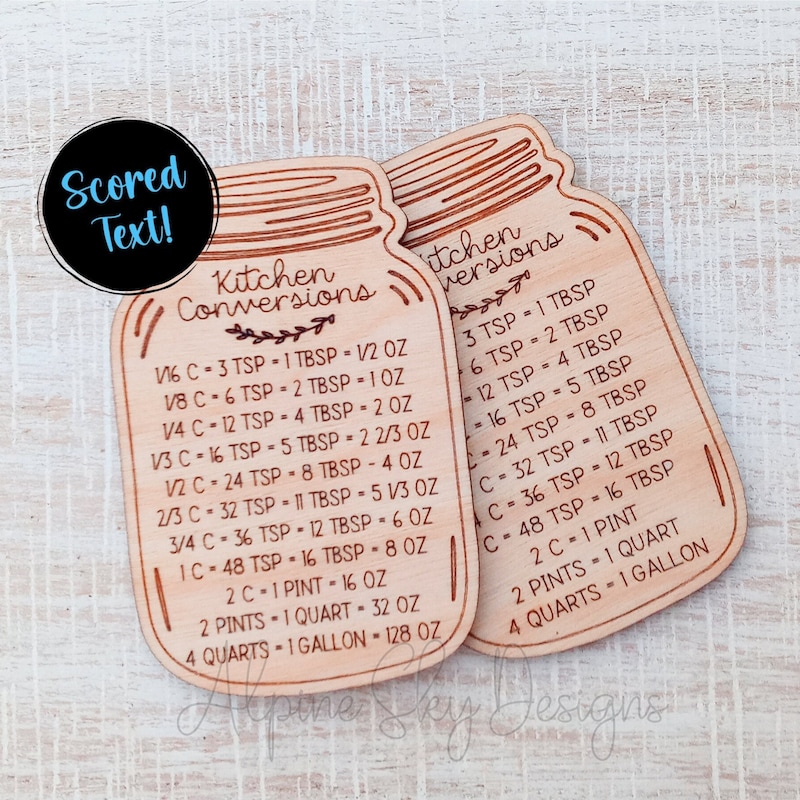 Scored
Text!
Kitchen
Conversions
1/16 C = 3 TSP = 1 TBSP = 1/2 OZ
1/8 C = 6 TSP = 2 TBSP = 1 OZ
1/4 C = 12 TSP = 4 TBSP = 2 OZ
1/3 C = 16 TSP = 5 TBSP = 2 2/3 OZ
1/2 C = 24 TSP = 8 TBSP - 4 OZ
2/3 C = 32 TSP = 11 TBSP = 5 1/3 OZ
3/4 C = 36 TSP = 12 TBSP = 6 OZ
1 C = 48 TSP = 16 TBSP = 8 OZ
2 C = 1 PINT = 16 OZ
2 PINTS = 1 QUART = 32 OZ
4 QUARTS = 1 GALLON = 128 OZ
Kitchen
versions
3 TSP = 1 TBSP
6 TSP = 2 TBSP
= 12 TSP = 4 TBSP
= 16 TSP = 5 TBSP
= 24 TSP = 8 TBSP
C = 32 TSP = 11 TBSP
C = 36 TSP = 12 TBSP
C = 48 TSP = 16 TBSP
2 C = 1 PINT
2 PINTS = 1 QUART
4 QUARTS = 1 GALLON
Alpine Sky Designs